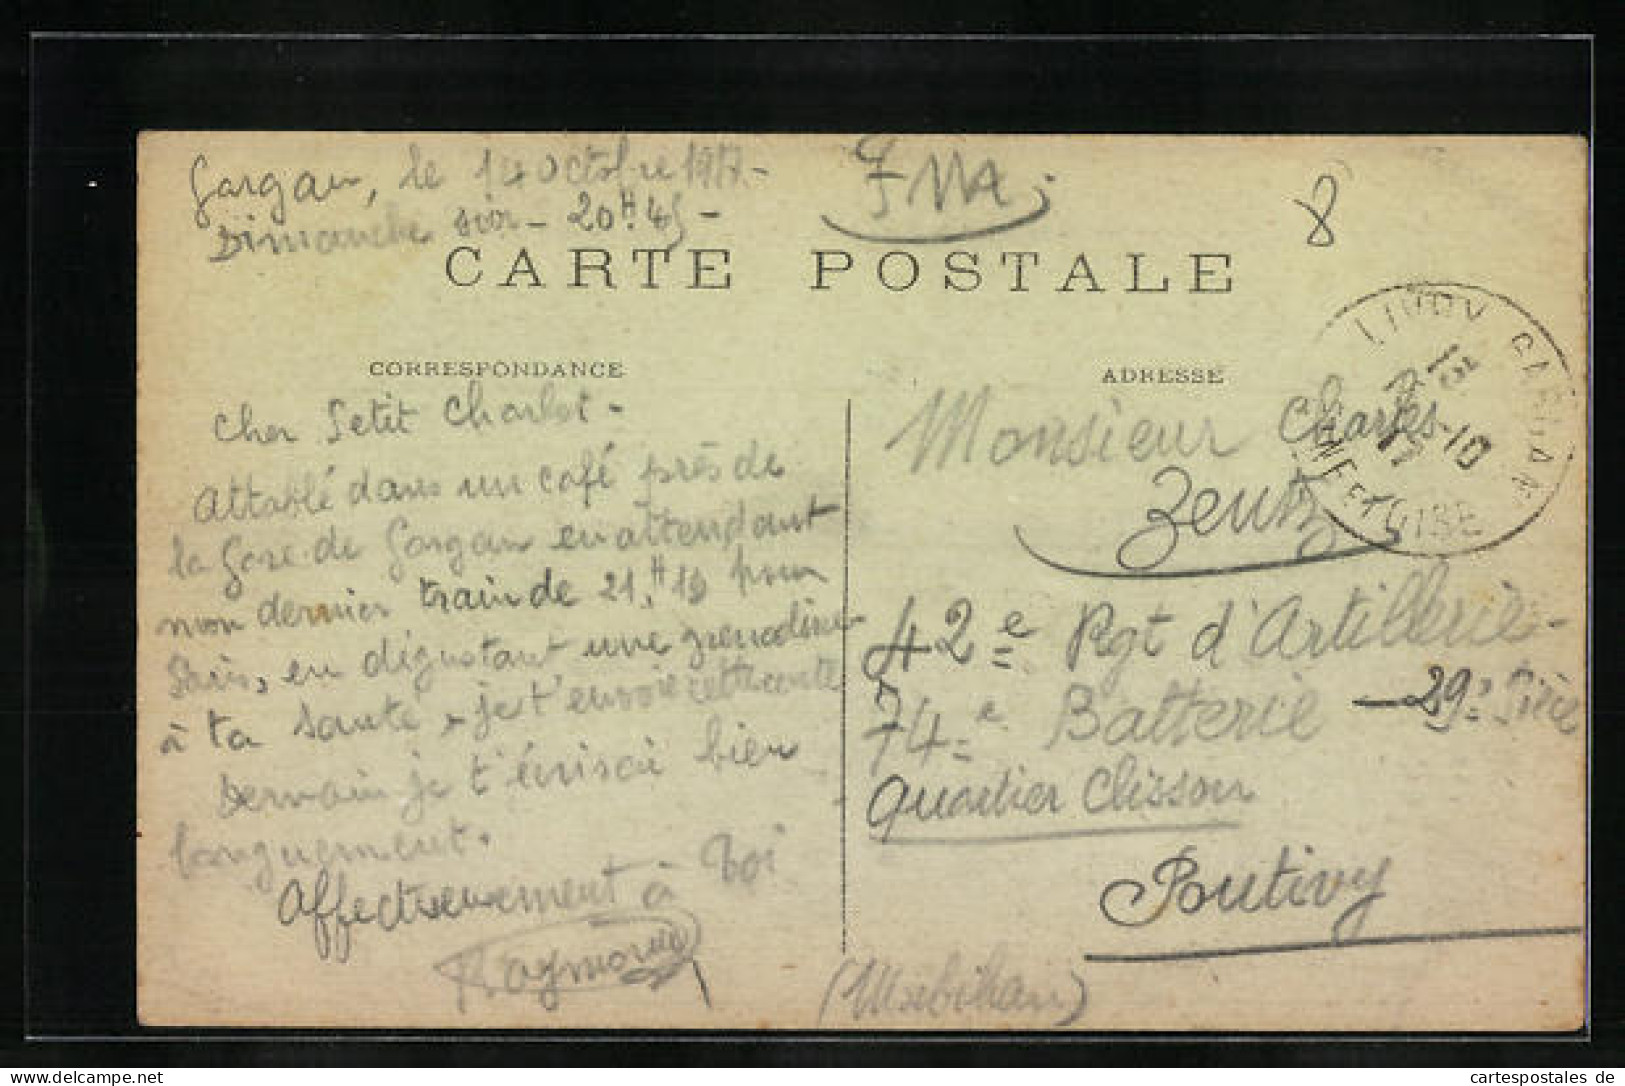 Gargan, le 14 octobre 1917 -
Dimanche soir - 20H.45 -
F M
8
CARTE POSTALE
CORRESPONDANCE
ADRESSE
Cher Petit Charlot -
Attablé dans un café près de
la Gare de Gargan en attendant
mon dernier train de 21.H 19 pour
Paris, en dégustant une grenadine
à ta santé, je t'envoie cette carte
Demain je t'écrirai bien
longuement.
Affectueusement à Toi
Raymond
Monsieur Charles
Zentz
42e Rgt d'Artillerie -
74e Batterie - 29e Pièce
Quartier Clisson
Pontivy
(Morbihan)
LIVRY GARGAN
15-10
17
SEINE ET OISE
cartespostales de